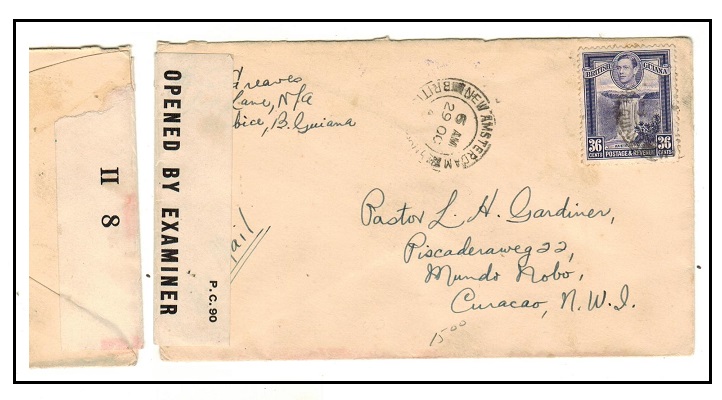 II 8
OPENED BY EXAMINER
P.C.90
Greaves
Lane, N/A
bice, B. Guiana
ail
NEW AMSTERDAM
BRITI
6 AM
29 OC
BRITISH GUIANA
36 CENTS
POSTAGE & REVENUE
36 CENTS
Pastor L. H. Gardiner,
Piscaderaweg 22,
Mundo Nobo,
Curacao, N.W.I.
15-00